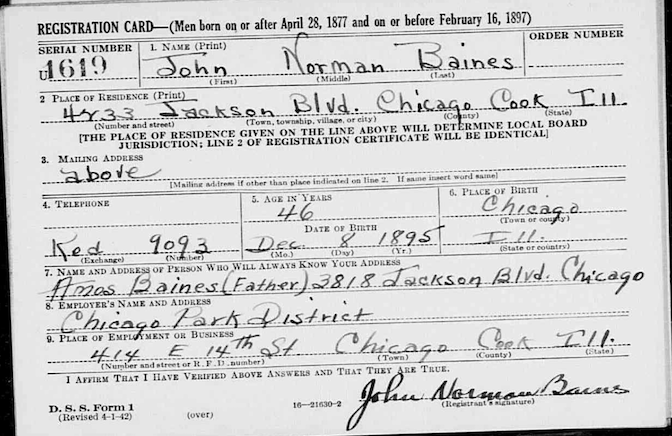 REGISTRATION CARD—(Men born on or after April 28, 1877 and on or before February 16, 1897)
SERIAL NUMBER 1. NAME (Print) ORDER NUMBER
U1619 John Norman Baines
(First) (Middle) (Last)
2 PLACE OF RESIDENCE (Print)
Jackson Blvd. Chicago Cook Ill.
(Number and street) (Town, township, village, or city) (County) (State)
[THE PLACE OF RESIDENCE GIVEN ON THE LINE ABOVE WILL DETERMINE LOCAL BOARD
JURISDICTION; LINE 2 OF REGISTRATION CERTIFICATE WILL BE IDENTICAL]
3. MAILING ADDRESS
above
[Mailing address if other than place indicated on line 2. If same insert word same]
4. TELEPHONE 5. AGE IN YEARS 6. PLACE OF BIRTH
46 Chicago
(Town or county)
DATE OF BIRTH
Ked 9093 Dec. 8 1895 Ill.
(Exchange) (Number) (Mo.) (Day) (Yr.) (State or country)
7. NAME AND ADDRESS OF PERSON WHO WILL ALWAYS KNOW YOUR ADDRESS
Amos Baines (Father) 3818 Jackson Blvd. Chicago
8. EMPLOYER'S NAME AND ADDRESS
Chicago Park District
9. PLACE OF EMPLOYMENT OR BUSINESS
414 E 14th St Chicago Cook Ill.
(Number and street or R. F. D. number) (Town) (County) (State)
I AFFIRM THAT I HAVE VERIFIED ABOVE ANSWERS AND THAT THEY ARE TRUE.
John Norman Baines
D. S. S. Form 1
(Revised 4-1-42) (over) 16—21630-2 (Registrant's signature)